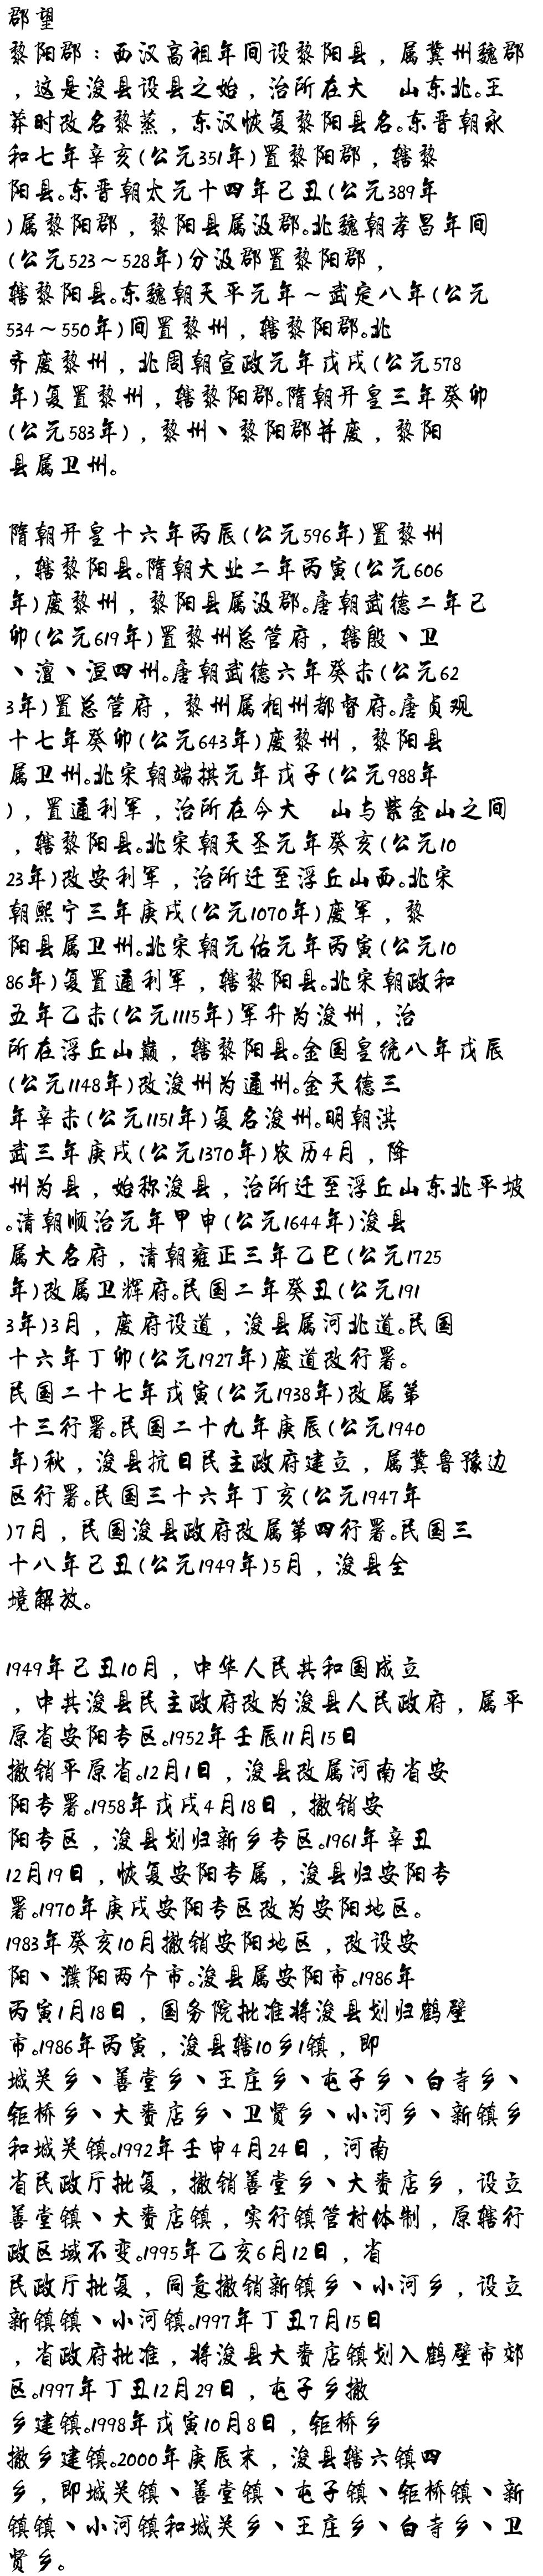 郡望
黎阳郡：西汉高祖年间设黎阳县，属冀州魏郡
，这是浚县设县之始，治所在大　山东北。王
莽时改名黎蒸，东汉恢复黎阳县名。东晋朝永
和七年辛亥(公元351年)置黎阳郡，辖黎
阳县。东晋朝太元十四年己丑(公元389年
)属黎阳郡，黎阳县属汲郡。北魏朝孝昌年间
(公元523～528年)分汲郡置黎阳郡，
辖黎阳县。东魏朝天平元年～武定八年(公元
534～550年)间置黎州，辖黎阳郡。北
齐废黎州，北周朝宣政元年戊戌(公元578
年)复置黎州，辖黎阳郡。隋朝开皇三年癸卯
(公元583年)，黎州、黎阳郡并废，黎阳
县属卫州。
隋朝开皇十六年丙辰(公元596年)置黎州
，辖黎阳县。隋朝大业二年丙寅(公元606
年)废黎州，黎阳县属汲郡。唐朝武德二年己
卯(公元619年)置黎州总管府，辖殷、卫
、澶、洹四州。唐朝武德六年癸未(公元62
3年)置总管府，黎州属相州都督府。唐贞观
十七年癸卯(公元643年)废黎州，黎阳县
属卫州。北宋朝端拱元年戊子(公元988年
)，置通利军，治所在今大　山与紫金山之间
，辖黎阳县。北宋朝天圣元年癸亥(公元10
23年)改安利军，治所迁至浮丘山西。北宋
朝熙宁三年庚戌(公元1070年)废军，黎
阳县属卫州。北宋朝元佑元年丙寅(公元10
86年)复置通利军，辖黎阳县。北宋朝政和
五年乙未(公元1115年)军升为浚州，治
所在浮丘山巅，辖黎阳县。金国皇统八年戊辰
(公元1148年)改浚州为通州。金天德三
年辛未(公元1151年)复名浚州。明朝洪
武三年庚戌(公元1370年)农历4月，降
州为县，始称浚县，治所迁至浮丘山东北平坡
。清朝顺治元年甲申(公元1644年)浚县
属大名府，清朝雍正三年乙巳(公元1725
年)改属卫辉府。民国二年癸丑(公元191
3年)3月，废府设道，浚县属河北道。民国
十六年丁卯(公元1927年)废道改行署。
民国二十七年戊寅(公元1938年)改属第
十三行署。民国二十九年庚辰(公元1940
年)秋，浚县抗日民主政府建立，属冀鲁豫边
区行署。民国三十六年丁亥(公元1947年
)7月，民国浚县政府改属第四行署。民国三
十八年己丑(公元1949年)5月，浚县全
境解放。
1949年己丑10月，中华人民共和国成立
，中共浚县民主政府改为浚县人民政府，属平
原省安阳专区。1952年壬辰11月15日
撤销平原省。12月1日，浚县改属河南省安
阳专署。1958年戊戌4月18日，撤销安
阳专区，浚县划归新乡专区。1961年辛丑
12月19日，恢复安阳专属，浚县归安阳专
署。1970年庚戌安阳专区改为安阳地区。
1983年癸亥10月撤销安阳地区，改设安
阳、濮阳两个市。浚县属安阳市。1986年
丙寅1月18日，国务院批准将浚县划归鹤壁
市。1986年丙寅，浚县辖10乡1镇，即
城关乡、善堂乡、王庄乡、屯子乡、白寺乡、
钜桥乡、大赉店乡、卫贤乡、小河乡、新镇乡
和城关镇。1992年壬申4月24日，河南
省民政厅批复，撤销善堂乡、大赉店乡，设立
善堂镇、大赉店镇，实行镇管村体制，原辖行
政区域不变。1995年乙亥6月12日，省
民政厅批复，同意撤销新镇乡、小河乡，设立
新镇镇、小河镇。1997年丁丑7月15日
，省政府批准，将浚县大赉店镇划入鹤壁市郊
区。1997年丁丑12月29日，屯子乡撤
乡建镇。1998年戊寅10月8日，钜桥乡
撤乡建镇。2000年庚辰末，浚县辖六镇四
乡，即城关镇、善堂镇、屯子镇、钜桥镇、新
镇镇、小河镇和城关乡、王庄乡、白寺乡、卫
贤乡。